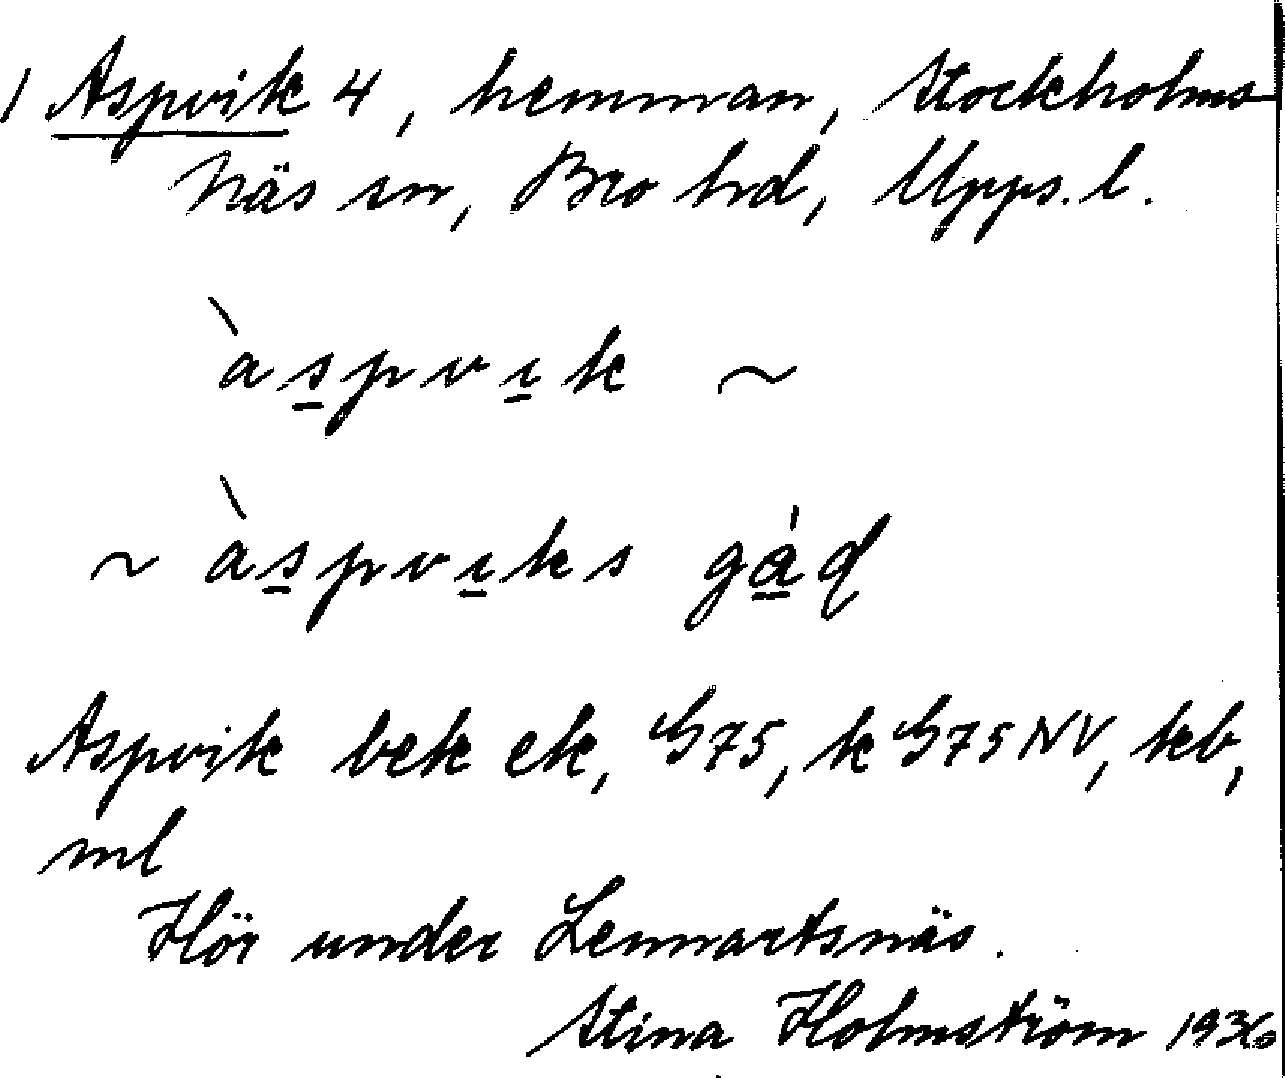 1 Aspvik 4, hemman, Stockholms-
Näs sn, Bro hd, Upps. l.
`àspvık ~
~ `àspvıks gád
Aspvik bek ek, G75, k G75NV, kb,
ml
Hör under Lennartsnäs.
Stina Holmström 1936